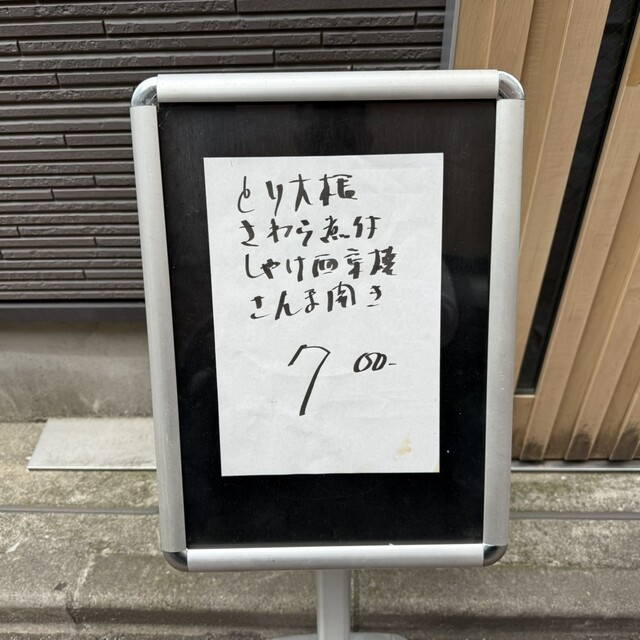 とり大根
さわら煮付
しゃけ西京焼
さんま開き
700-